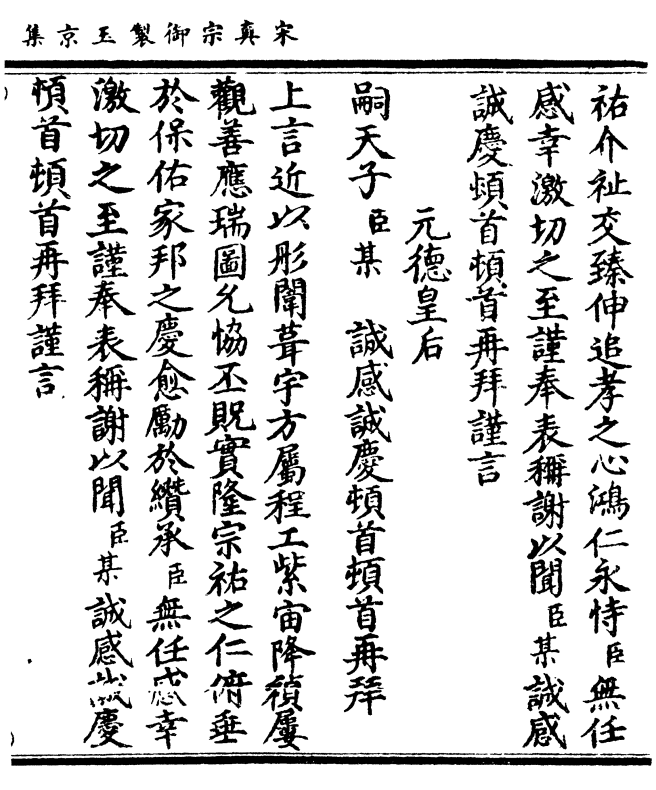 宋真宗御製玉京集
祐介祉交臻伸追孝之心鴻仁永恃臣無任
感幸激切之至謹奉表稱謝以聞臣某誠感
誠慶頓首頓首再拜謹言
元德皇后
嗣天子臣某 誠感誠慶頓首頓首再拜
上言近以彤闈葺宇方屬程工紫宙降禎屢
觀善應瑞圖允協丕貺實隆宗祐之仁俯垂
於保佑家邦之慶愈勵於纘承臣無任感幸
激切之至謹奉表稱謝以聞臣某誠感誠慶
頓首頓首再拜謹言